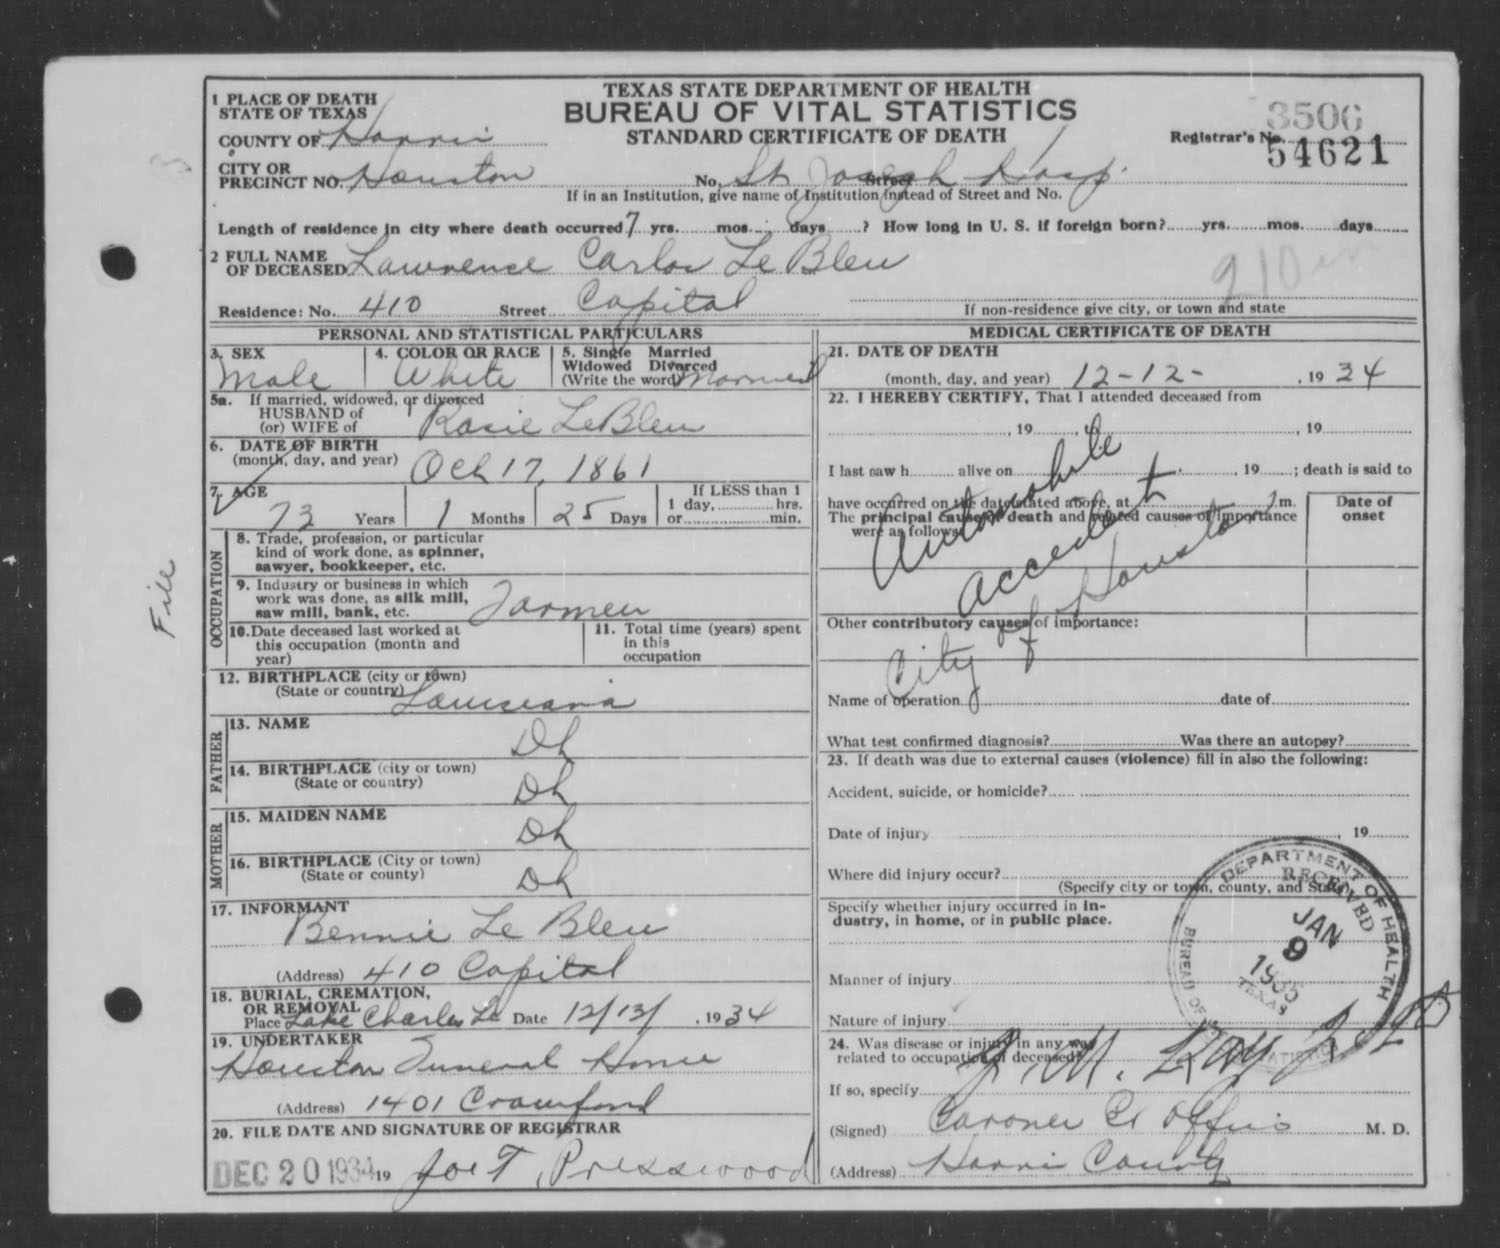 TEXAS STATE DEPARTMENT OF HEALTH
BUREAU OF VITAL STATISTICS
STANDARD CERTIFICATE OF DEATH
3506
Registrar's No. 54621
1 PLACE OF DEATH
STATE OF TEXAS
COUNTY OF Harris
CITY OR
PRECINCT NO. Houston No. St Joseph Hosp. Street
If in an Institution, give name of Institution instead of Street and No.
Length of residence in city where death occurred 7 yrs. mos. days ? How long in U. S. if foreign born? yrs. mos. days
2 FULL NAME
OF DECEASED Lawrence Carlos Le Bleu
Residence: No. 410 Street Capital
If non-residence give city, or town and state
PERSONAL AND STATISTICAL PARTICULARS
3. SEX Male
4. COLOR OR RACE White
5. Single Married
Widowed Divorced
(Write the word) Married
5a. If married, widowed, or divorced
HUSBAND of
(or) WIFE of Rosie LeBleu
6. DATE OF BIRTH
(month, day, and year) Oct 17, 1861
7. AGE
73 Years 1 Months 25 Days
If LESS than 1
1 day, hrs.
or min.
OCCUPATION
8. Trade, profession, or particular
kind of work done, as spinner,
sawyer, bookkeeper, etc.
9. Industry or business in which
work was done, as silk mill,
saw mill, bank, etc. Farmer
10. Date deceased last worked at
this occupation (month and
year)
11. Total time (years) spent
in this
occupation
12. BIRTHPLACE (city or town)
(State or country) Louisiana
FATHER
13. NAME Dk
14. BIRTHPLACE (city or town)
(State or country) Dk
MOTHER
15. MAIDEN NAME Dk
16. BIRTHPLACE (City or town)
(State or county) Dk
17. INFORMANT
Bennie Le Bleu
(Address) 410 Capital
18. BURIAL, CREMATION,
OR REMOVAL
Place Lake Charles La Date 12/13/ , 1934
19. UNDERTAKER
Houston Funeral Home
(Address) 1401 Crawford
20. FILE DATE AND SIGNATURE OF REGISTRAR
DEC 20 1934 19 Joe T. Presswood
MEDICAL CERTIFICATE OF DEATH
21. DATE OF DEATH
(month, day, and year) 12-12- , 1934
22. I HEREBY CERTIFY, That I attended deceased from
, 19 , to , 19
I last saw h alive on , 19 ; death is said to
have occurred on the date stated above, at m.
The principal cause of death and related causes of importance
were as follows:
Date of
onset
Automobile
accident
City of Houston
Other contributory causes of importance:
Name of operation date of
What test confirmed diagnosis? Was there an autopsy?
23. If death was due to external causes (violence) fill in also the following:
Accident, suicide, or homicide?
Date of injury , 19
Where did injury occur?
(Specify city or town, county, and State)
Specify whether injury occurred in in-
dustry, in home, or in public place.
Manner of injury
Nature of injury
24. Was disease or injury in any way
related to occupation of deceased?
If so, specify J. M. Ray
(Signed) Coroner M. D.
(Address) Harris County
DEPARTMENT OF HEALTH
RECEIVED
JAN
9
1935
TEXAS
BUREAU OF
File